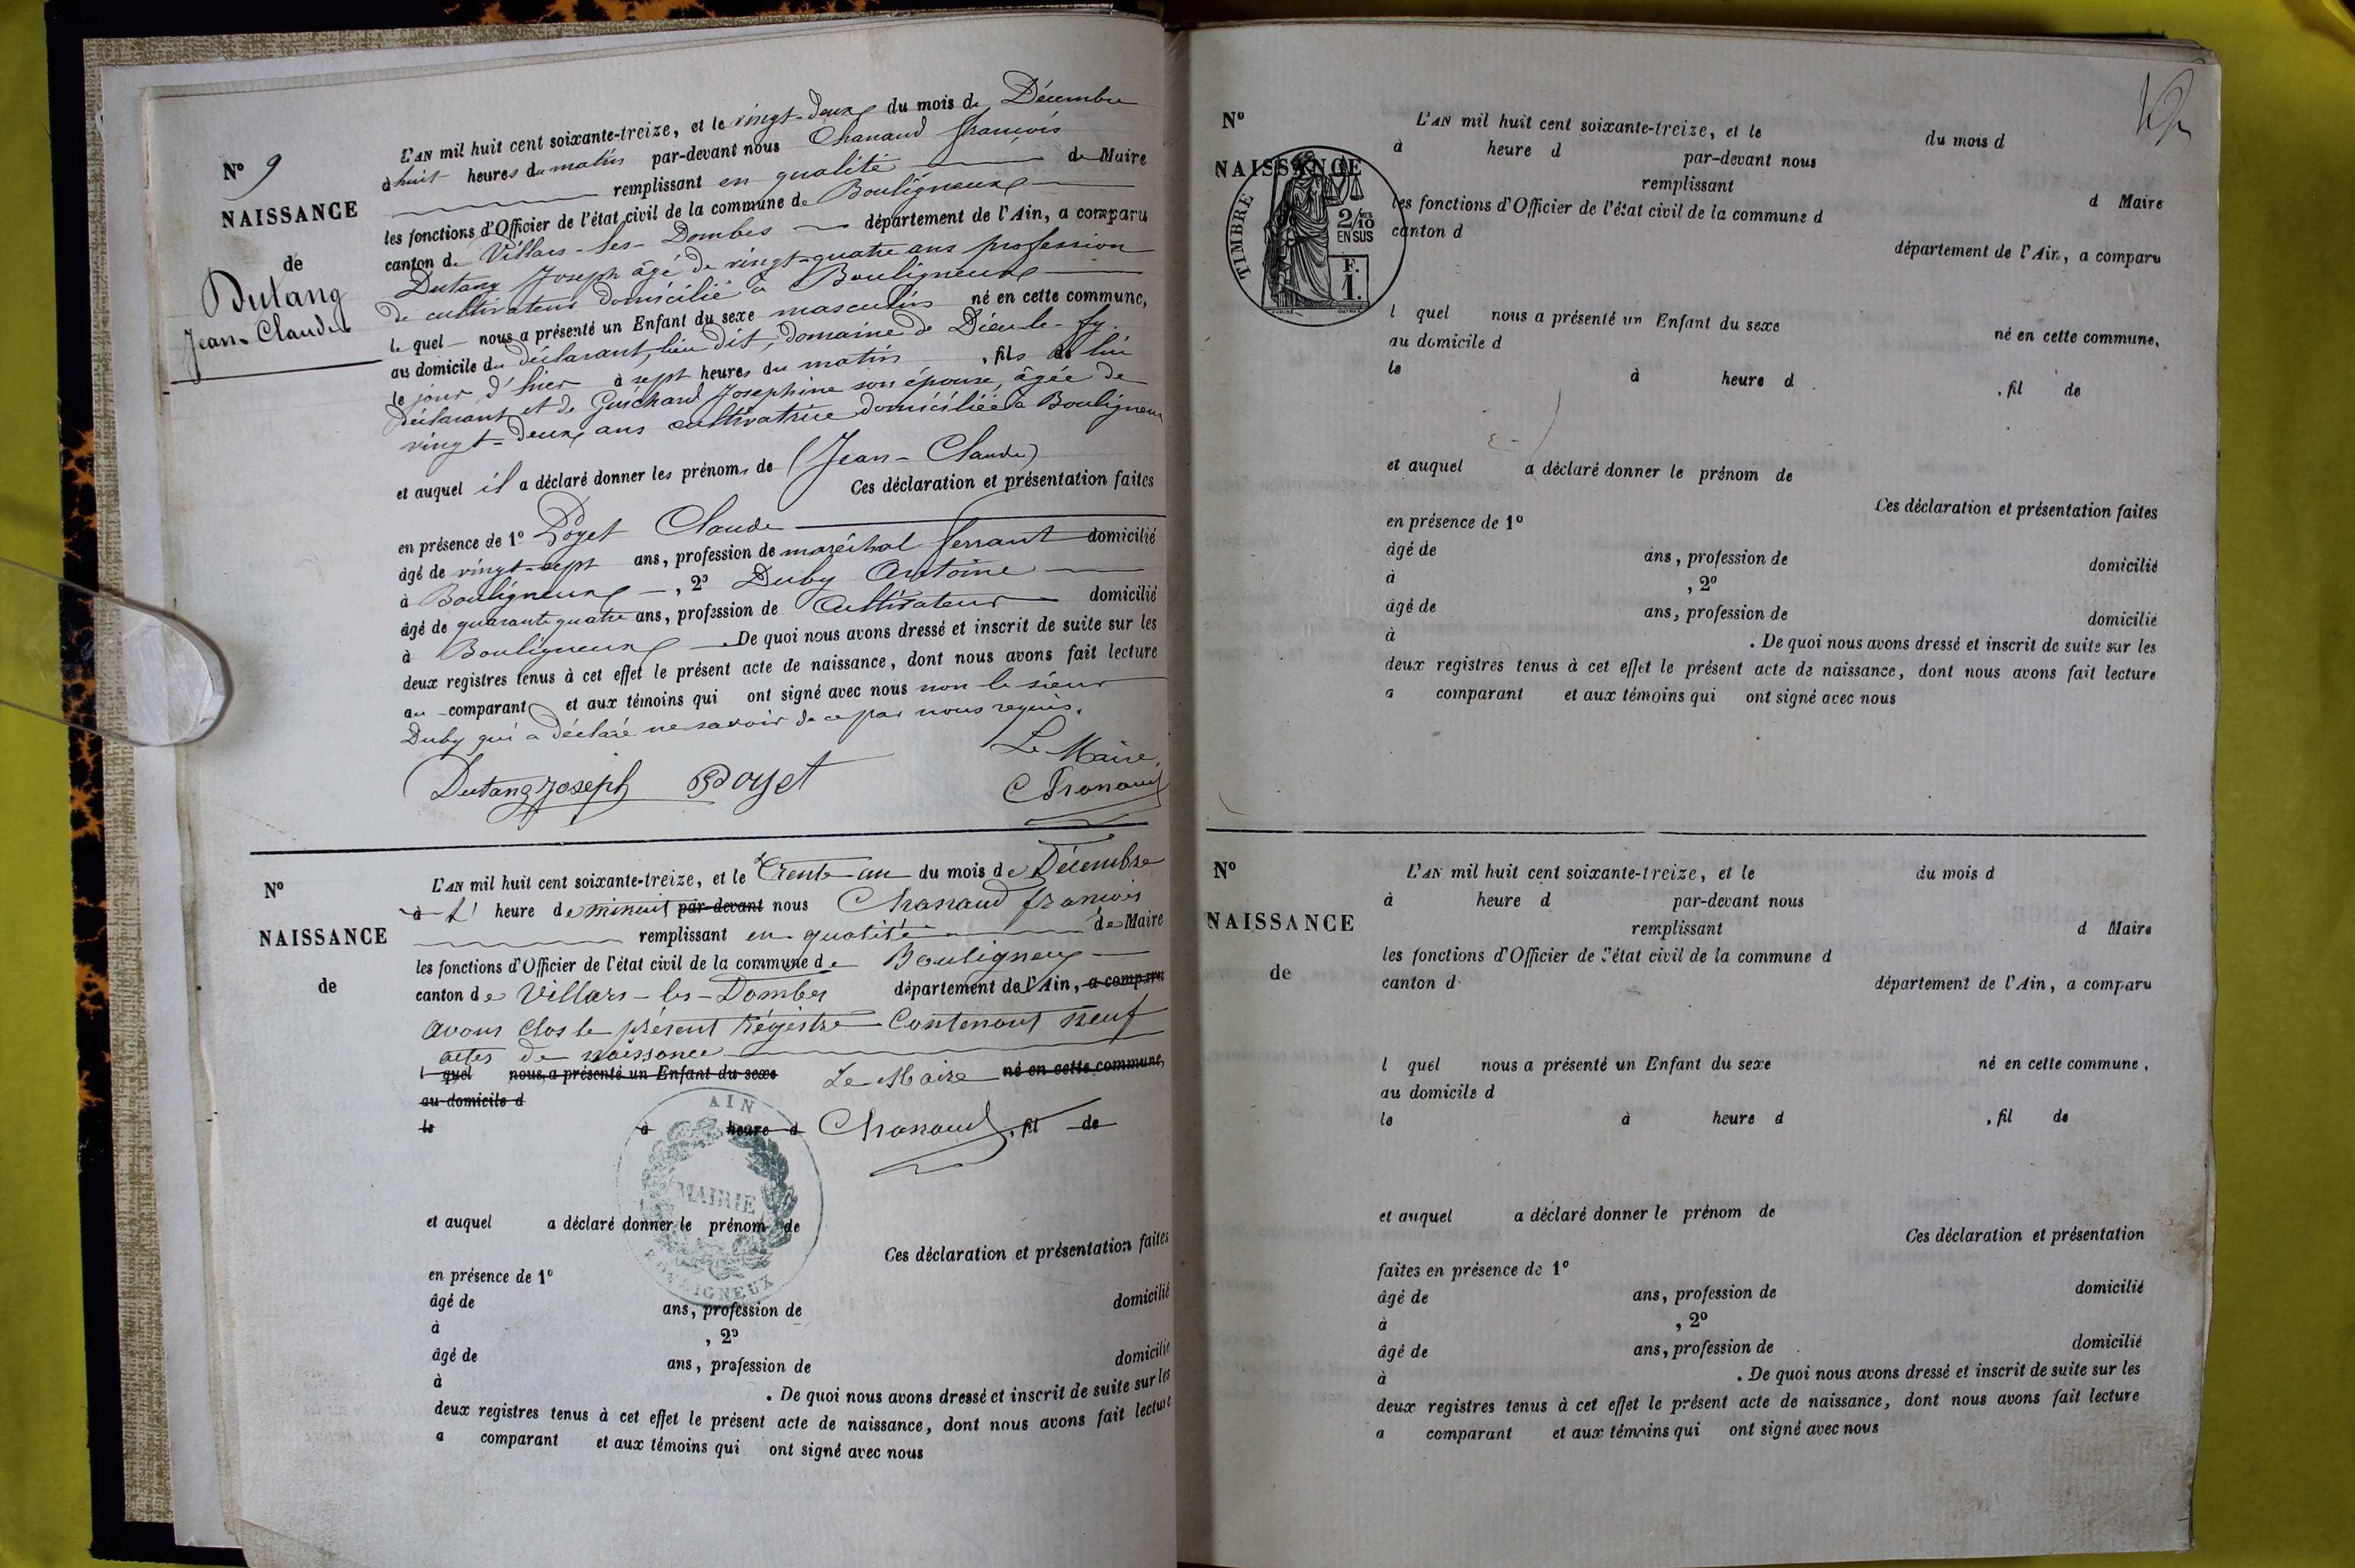 N° 9
NAISSANCE
de
Dutang
Jean-Claude
L'AN mil huit cent soixante-treize, et le vingt-deux du mois de Décembre
à huit heures du matin par-devant nous Chanaud François
remplissant en qualité de Maire
les fonctions d'Officier de l'état civil de la commune de Bouligneux
canton de Villars-les-Dombes département de l'Ain, a comparu
Dutang Joseph âgé de vingt-quatre ans profession
de cultivateur domicilié à Bouligneux
le quel nous a présenté un Enfant du sexe masculin né en cette commune,
au domicile du déclarant, lieu dit, domaine de Dieu-le-fy.
le jour d'hier à sept heures du matin , fils de lui
déclarant et de Guichard Josephine son épouse, âgée de
vingt-deux ans cultivatrice domiciliée à Bouligneux
et auquel il a déclaré donner les prénoms de (Jean-Claude)
Ces déclaration et présentation faites
en présence de 1° Poyet Claude
âgé de vingt-sept ans, profession de maréchal ferrant domicilié
à Bouligneux , 2° Duby Antoine
âgé de quarante quatre ans, profession de Cultivateur domicilié
à Bouligneux . De quoi nous avons dressé et inscrit de suite sur les
deux registres tenus à cet effet le présent acte de naissance, dont nous avons fait lecture
au comparant et aux témoins qui ont signé avec nous non le sieur
Duby qui a déclaré ne savoir de ce par nous requis.
Le Maire,
Dutang Joseph Poyet Chanaud
N°
NAISSANCE
de
L'AN mil huit cent soixante-treize, et le Trente-un du mois de Décembre
à l' heure de minuit par-devant nous Chanaud françois
remplissant en qualité de Maire
les fonctions d'Officier de l'état civil de la commune de Bouligneux
canton de Villars-les-Dombes département de l'Ain, a comparu
avons clos le présent Régistre Contenant neuf
actes de naissance
l quel nous a présenté un Enfant du sexe Le Maire né en cette commune,
au domicile d
le à heure d Chanaud , fil de
AIN
MAIRIE
BOULIGNEUX
et auquel a déclaré donner le prénom de
Ces déclaration et présentation faites
en présence de 1°
âgé de ans, profession de domicilié
à , 2°
âgé de ans, profession de domicilié
à . De quoi nous avons dressé et inscrit de suite sur les
deux registres tenus à cet effet le présent acte de naissance, dont nous avons fait lecture
a comparant et aux témoins qui ont signé avec nous
N°
NAISSANCE
TIMBRE
2/10 MES
EN SUS
F.
1.
L'AN mil huit cent soixante-treize, et le du mois d
à heure d par-devant nous
remplissant d Maire
les fonctions d'Officier de l'état civil de la commune d
canton d département de l'Ain, a comparu
l quel nous a présenté un Enfant du sexe né en cette commune,
au domicile d
le à heure d , fil de
et auquel a déclaré donner le prénom de
Ces déclaration et présentation faites
en présence de 1°
âgé de ans, profession de domicilié
à , 2°
âgé de ans, profession de domicilié
à . De quoi nous avons dressé et inscrit de suite sur les
deux registres tenus à cet effet le présent acte de naissance, dont nous avons fait lecture
a comparant et aux témoins qui ont signé avec nous
N°
NAISSANCE
de
L'AN mil huit cent soixante-treize, et le du mois d
à heure d par-devant nous
remplissant d Maire
les fonctions d'Officier de l'état civil de la commune d
canton d département de l'Ain, a comparu
l quel nous a présenté un Enfant du sexe né en cette commune,
au domicile d
le à heure d , fil de
et auquel a déclaré donner le prénom de
Ces déclaration et présentation
faites en présence de 1°
âgé de ans, profession de domicilié
à , 2°
âgé de ans, profession de domicilié
à . De quoi nous avons dressé et inscrit de suite sur les
deux registres tenus à cet effet le présent acte de naissance, dont nous avons fait lecture
a comparant et aux témoins qui ont signé avec nous